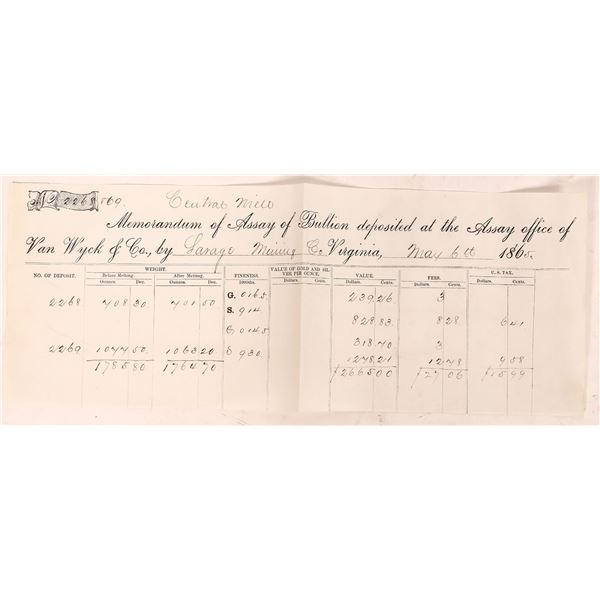 No 2268 869. Central Mill
Memorandum of Assay of Bullion deposited at the Assay office of
Van Wyck & Co., by Savage Mining Co Virginia, May 6th 1865.
NO. OF DEPOSIT. WEIGHT. FINENESS. VALUE OF GOLD AND SILVER PER OUNCE. VALUE. FEES. U. S. TAX.
Before Melting. After Melting. 1000ths.
Ounces. Dec. Ounces. Dec. Dollars. Cents. Dollars. Cents. Dollars. Cents. Dollars. Cents.
2268 708 30 701 50 G. 016.5 239.26 3
S. 914 828 83. 8 28 6 41
G 014.5 318.70 3
2269 1077 50 1063 20 S 930. 1278.21 12 78 9 58
1785 80 1764 70 $2665 00 $27 06 $15 99